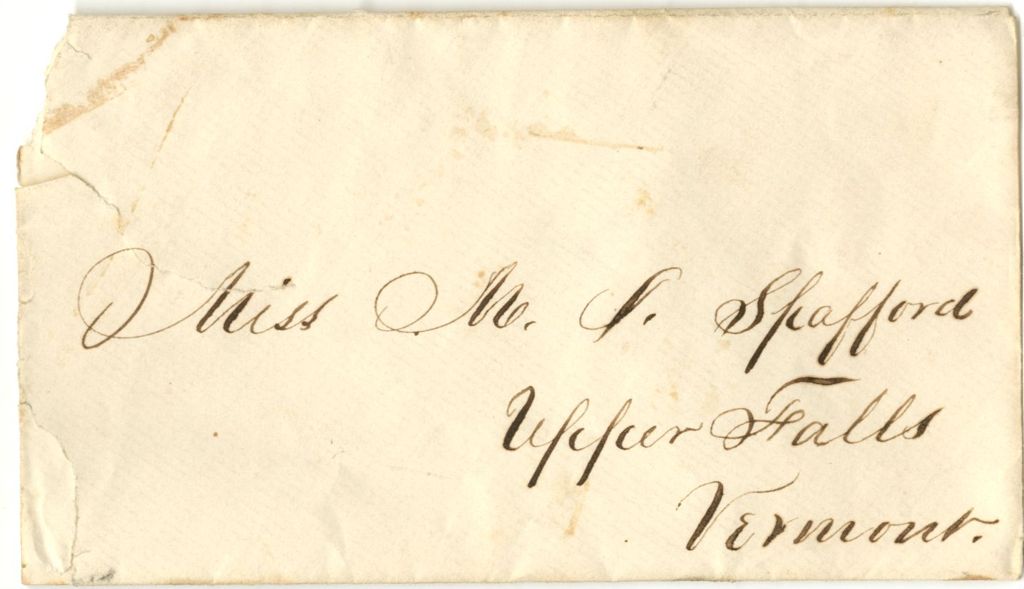 Miss M. S. Spafford
Upper Falls
Vermont.